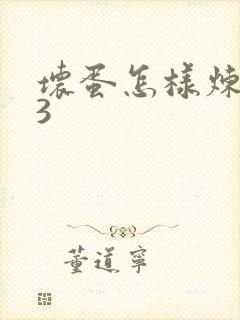 壞蛋怎樣煉
3
董道寧